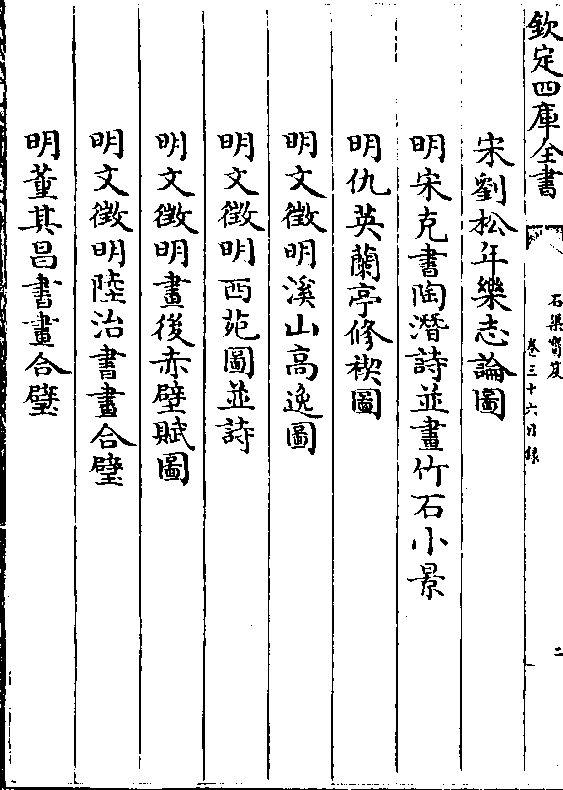 欽定四庫全書
石渠寶笈
卷三十六目錄
二
宋劉松年樂志論圖
明宋克書陶潛詩並畫竹石小景
明仇英蘭亭修禊圖
明文徵明溪山高逸圖
明文徵明西苑圖並詩
明文徵明畫後赤壁賦圖
明文徵明陸治書畫合璧
明董其昌書畫合璧